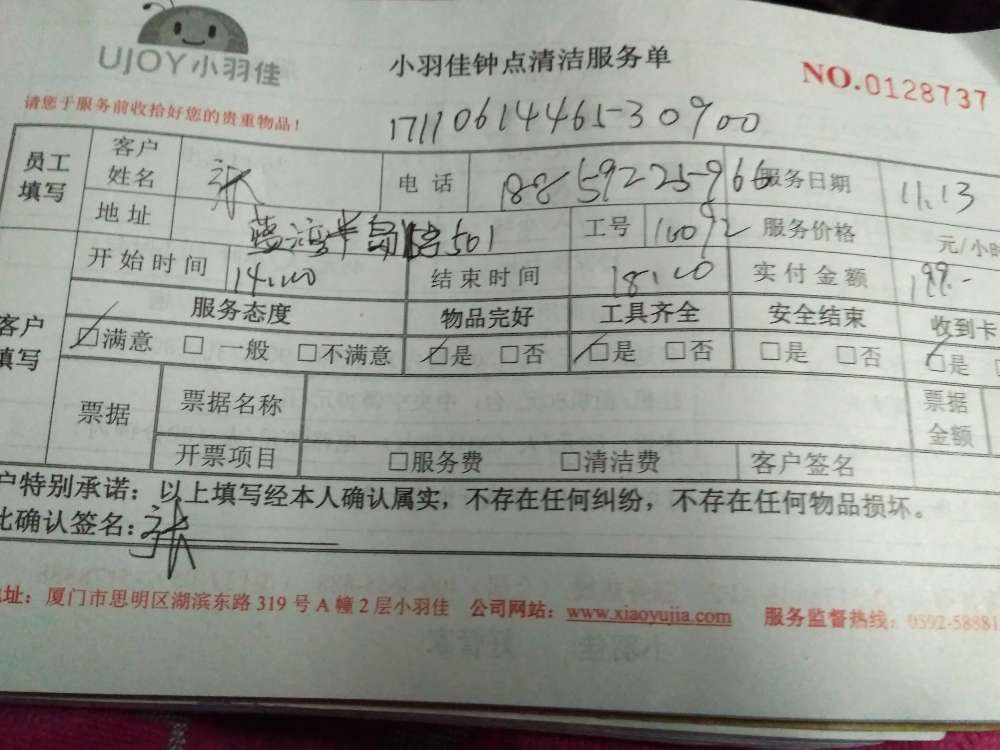 UJOY小羽佳
小羽佳钟点清洁服务单
NO.0128737
请您于服务前收拾好您的贵重物品!
17110614465-30900
员工填写 客户姓名 张 电话 18859225966 服务日期 11.13
地址 蓝湾半岛 501 工号 10092 服务价格 元/小时
开始时间 14.00 结束时间 18.00 实付金额 199.-
客户填写 服务态度 物品完好 工具齐全 安全结束 收到卡
☑满意 □一般 □不满意 ☑是 □否 ☑是 □否 □是 □否 ☑是
票据 票据名称 票据金额
开票项目 □服务费 □清洁费 客户签名
户特别承诺:以上填写经本人确认属实,不存在任何纠纷,不存在任何物品损坏。
比确认签名:张
址:厦门市思明区湖滨东路 319 号 A 幢 2 层小羽佳 公司网站:www.xiaoyujia.com 服务监督热线:0592-58881